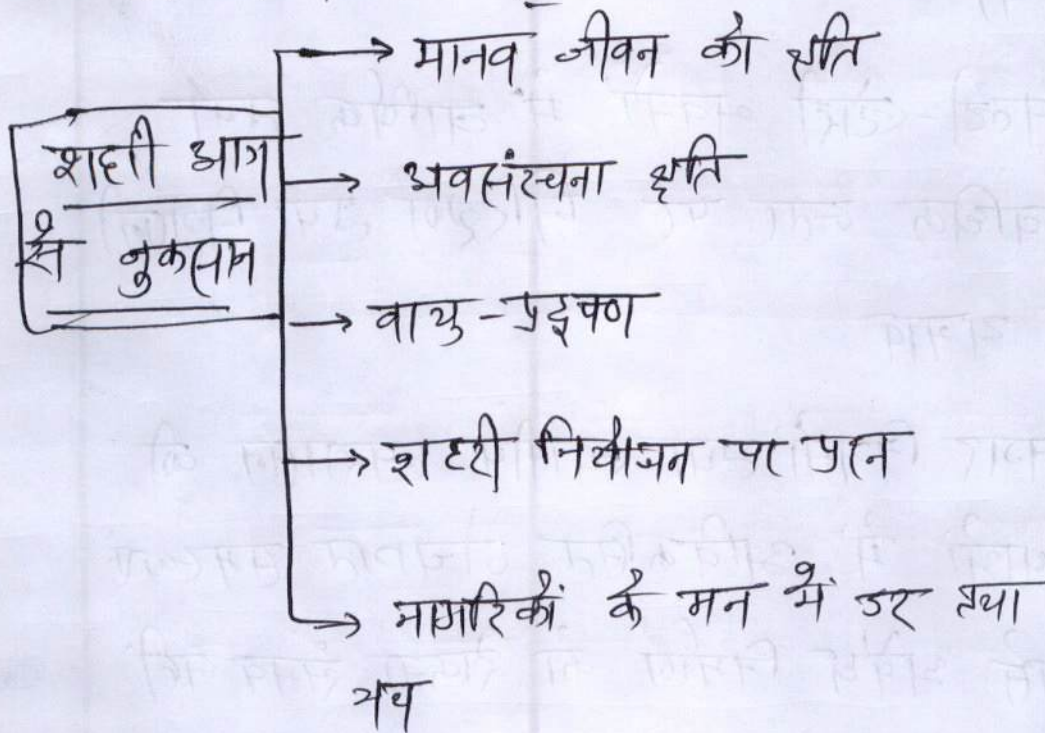 शहरी आग
से नुकसान
→ मानव जीवन को क्षति
→ अवसंरचना क्षति
→ वायु-प्रदूषण
→ शहरी नियोजन पर प्रश्न
→ नागरिकों के मन में डर तथा
भय